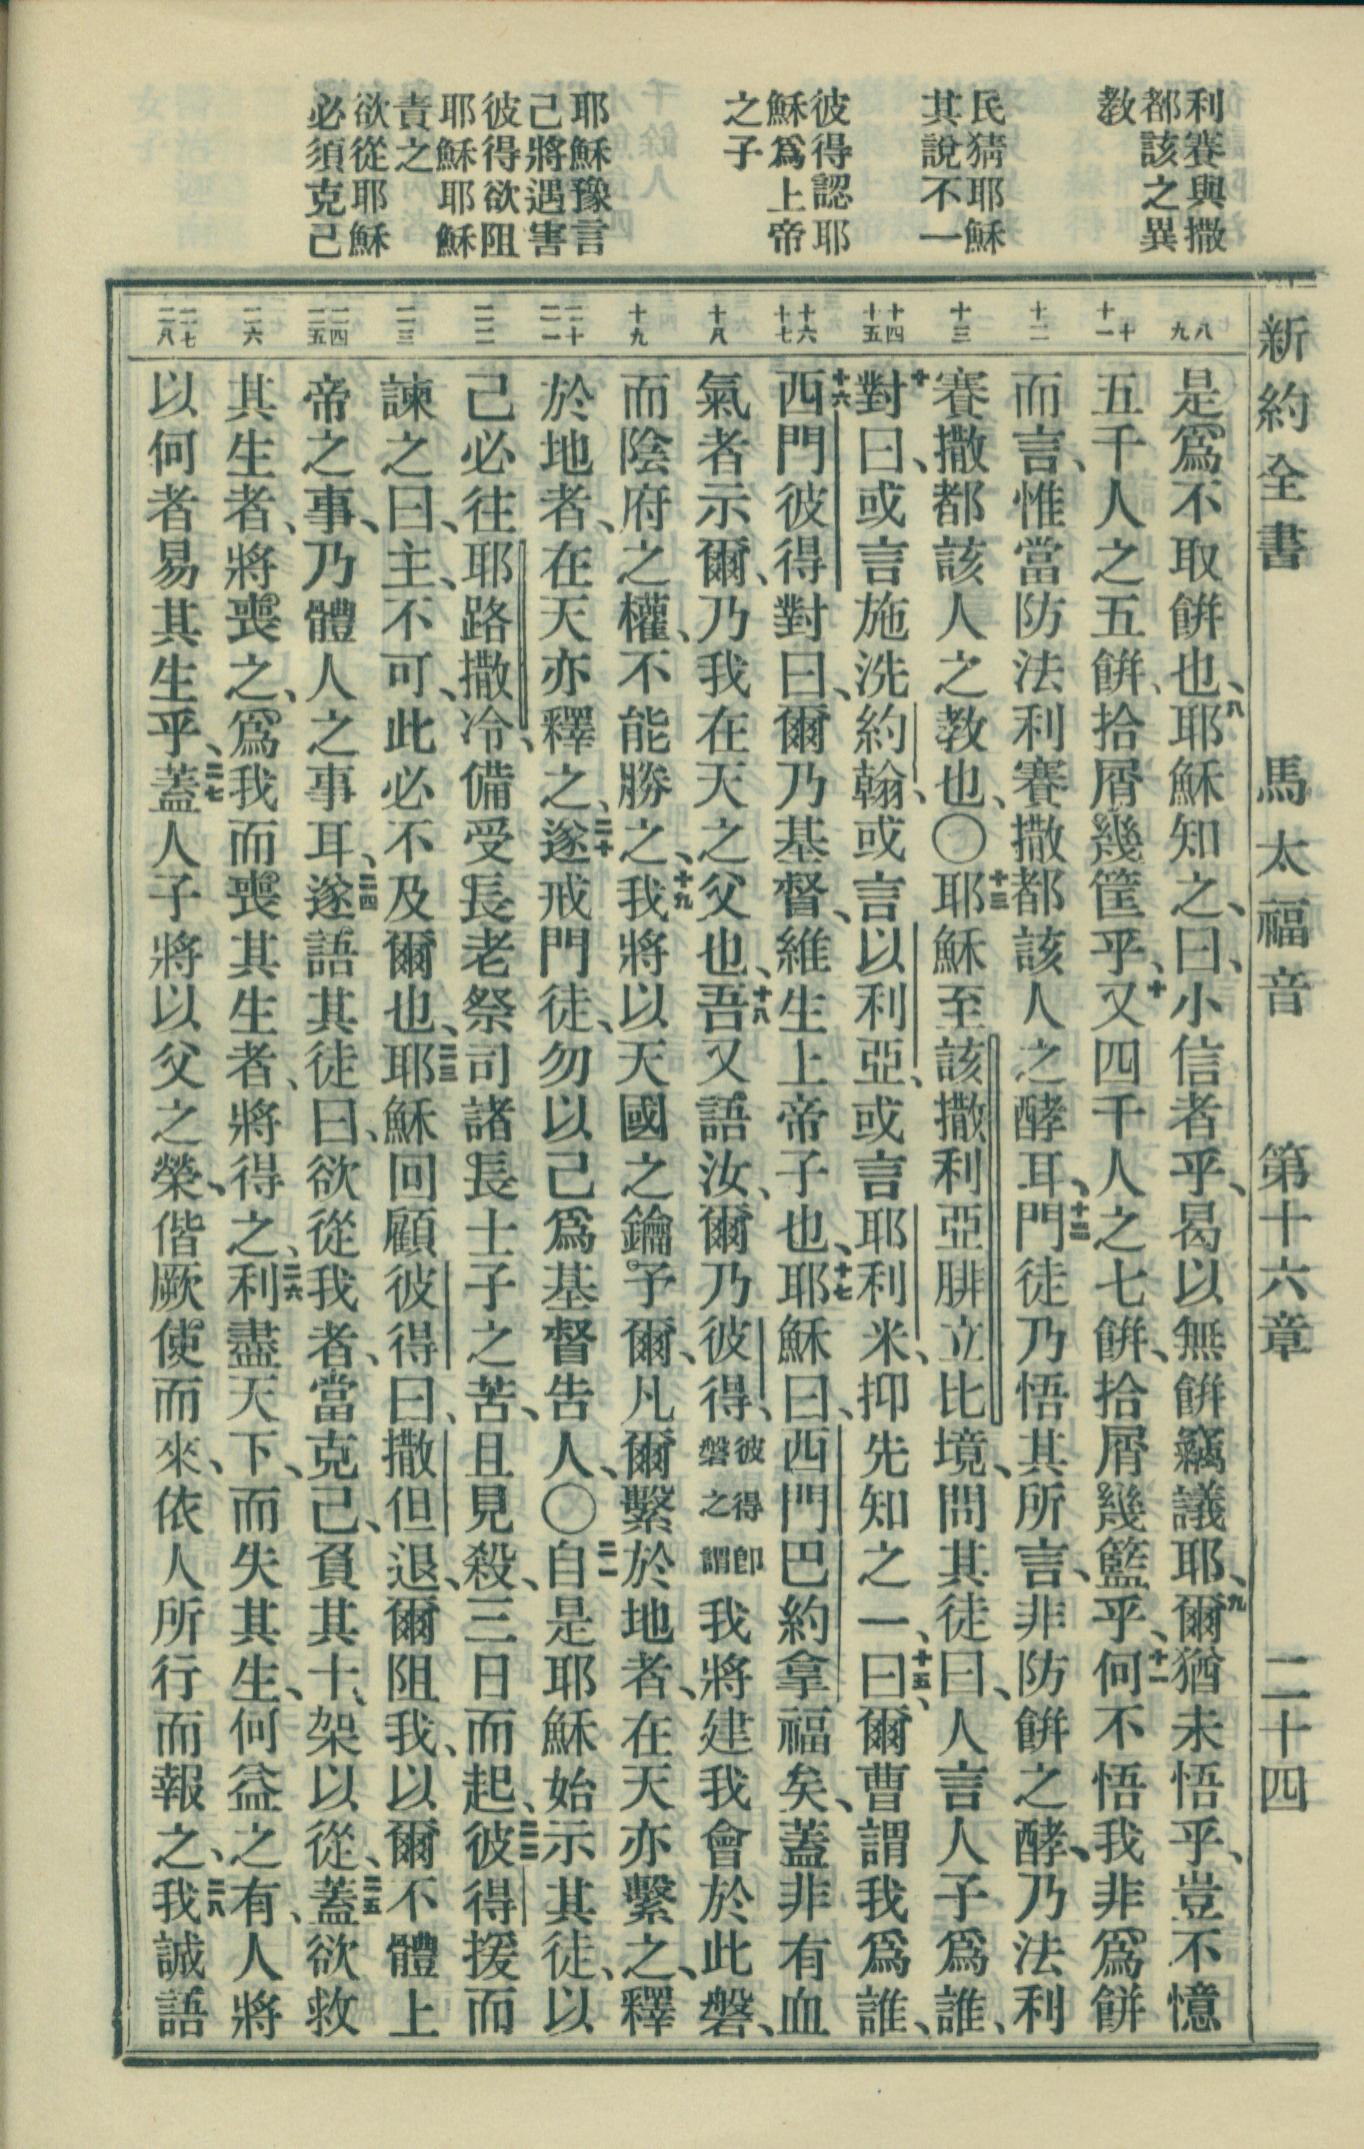 利賽與撒
都該之異
教
民猜耶穌
其說不一
彼得認耶
穌爲上帝
之子
耶穌豫言
己將遇害
彼得欲阻
耶穌耶穌
責之
欲從耶穌
必須克己
新約全書 馬太福音 第十六章 二十四
八
九
十
十一
十二
十三
十四
十五
十六
十七
十八
十九
二十
二一
二二
二三
二四
二五
二六
二七
二八
是爲不取餅也、八耶穌知之、曰、小信者乎、曷以無餅竊議耶、九爾猶未悟乎、豈不憶
五千人之五餅、拾屑幾筐乎、十又四千人之七餅、拾屑幾籃乎、十一何不悟我非爲餅
而言、惟當防法利賽撒都該人之酵耳、十二門徒乃悟其所言、非防餅之酵、乃法利
賽撒都該人之教也、〇十三耶穌至該撒利亞腓立比境、問其徒曰、人言人子爲誰、
十四對曰、或言施洗約翰、或言以利亞、或言耶利米、抑先知之一、十五曰、爾曹謂我爲誰、
十六西門彼得對曰、爾乃基督、維生上帝子也、十七耶穌曰、西門巴約拿福矣、蓋非有血
氣者示爾、乃我在天之父也、十八吾又語汝、爾乃彼得、彼得卽磐之謂我將建我會於此磐、
而陰府之權、不能勝之、十九我將以天國之鑰予爾、凡爾繫於地者、在天亦繫之、釋
於地者、在天亦釋之、二十遂戒門徒、勿以己爲基督告人、〇二一自是耶穌始示其徒、以
己必往耶路撒冷、備受長老祭司諸長士子之苦、且見殺、三日而起、二二彼得援而
諫之曰、主、不可、此必不及爾也、二三耶穌回顧彼得曰、撒但退、爾阻我、以爾不體上
帝之事、乃體人之事耳、二四遂語其徒曰、欲從我者、當克己、負其十架以從、二五蓋欲救
其生者、將喪之、爲我而喪其生者、將得之、二六利盡天下、而失其生、何益之有、人將
以何者易其生乎、二七蓋人子將以父之榮、偕厥使而來、依人所行而報之、二八我誠語